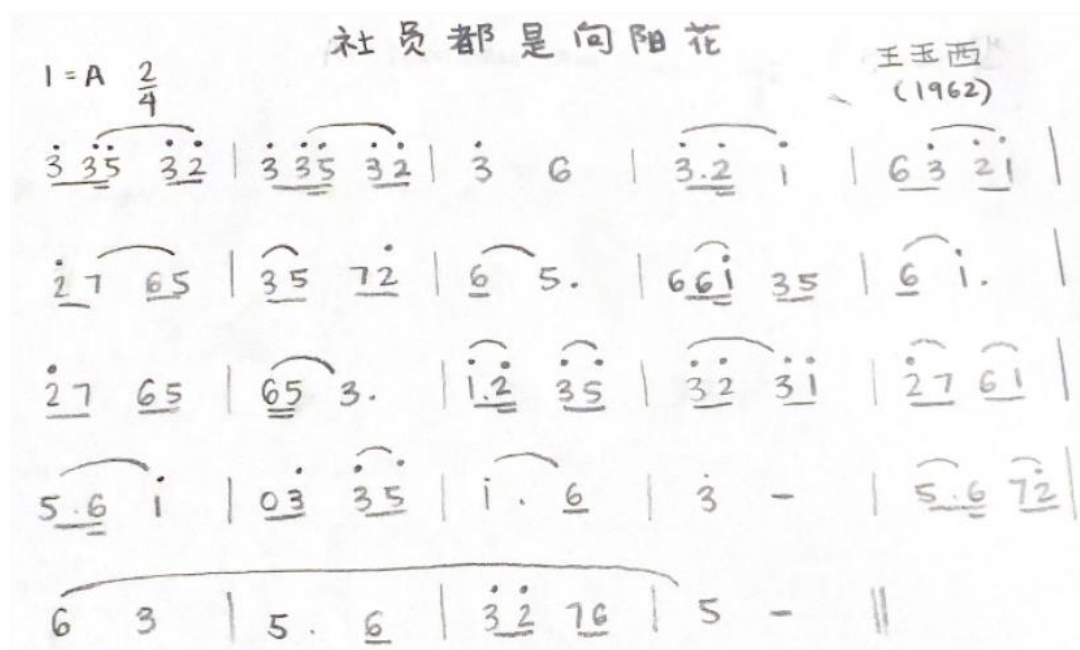 社员都是向阳花
1=A 2/4 王玉西
(1962)
3̇ 3̇5̇ 3̇2̇ | 3̇ 3̇5̇ 3̇2̇ | 3̇ 6 | 3̇.2̇ 1̇ | 6 3̇ 2̇1̇ |
2̇7 65 | 35 72̇ | 6 5. | 661̇ 35 | 6 1̇. |
2̇7 65 | 65 3. | 1̇.2̇ 3̇5̇ | 3̇2̇ 3̇1̇ | 2̇7 61 |
5.6 1̇ | 03̇ 3̇5̇ | 1̇. 6 | 3̇ - | 5.6 72̇ |
6 3 | 5. 6 | 3̇2̇ 76 | 5 - ||